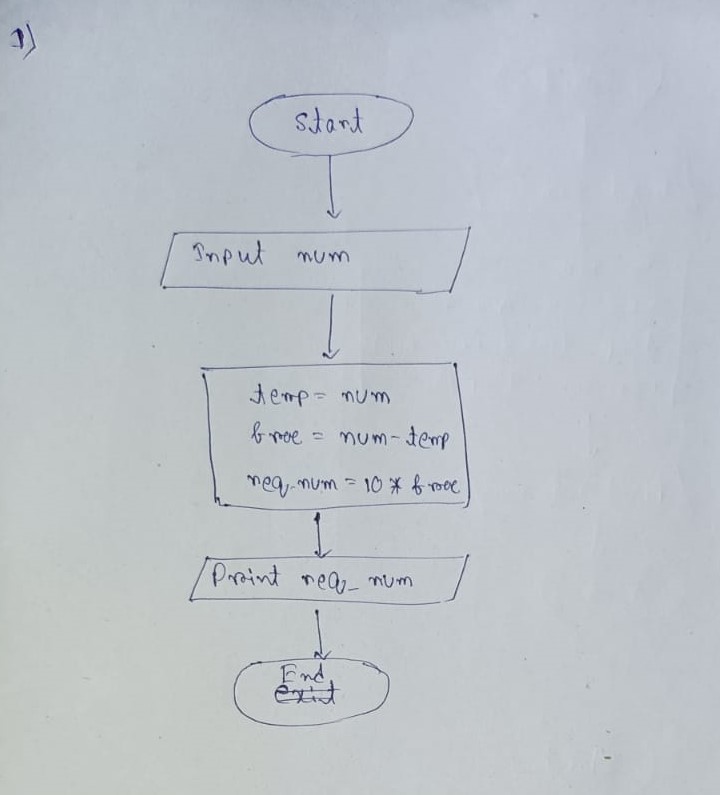 1)
Start
Input num
temp = num
frac = num - temp
req_num = 10 * frac
Print req_num
End
exit